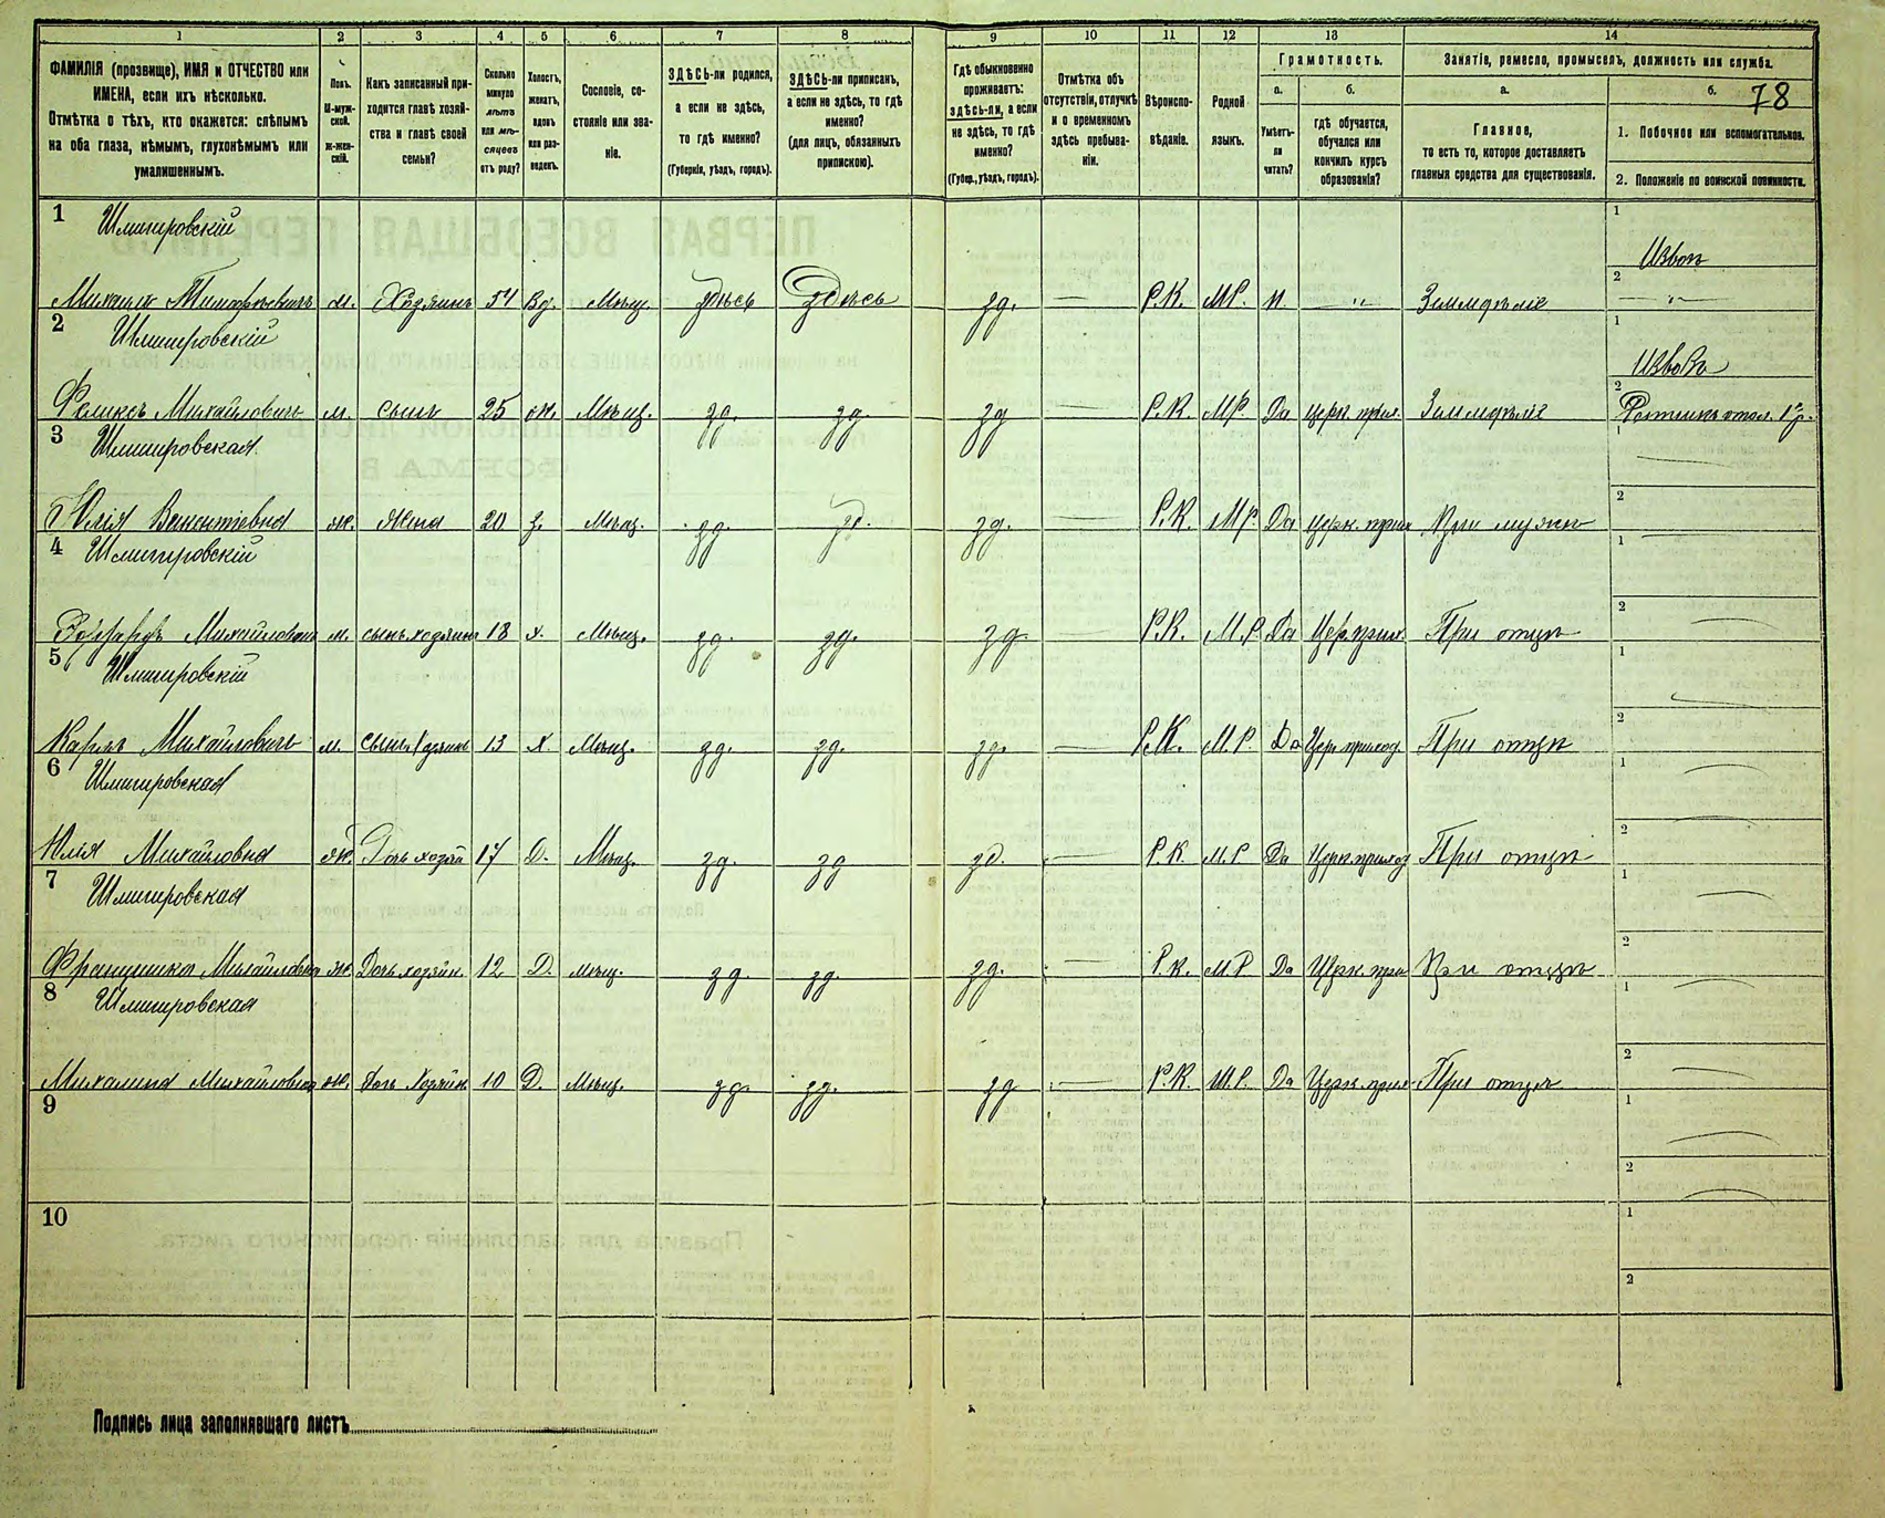 1 2 3 4 5 6 7 8 9 10 11 12 13 14
ФАМИЛІЯ (прозвище), ИМЯ и ОТЧЕСТВО или ИМЕНА, если ихъ нѣсколько.
Отмѣтка о тѣхъ, кто окажется: слѣпымъ на оба глаза, нѣмымъ, глухонѣмымъ или умалишеннымъ.
Полъ.
М-муж-
ской.
ж-жен-
скій.
Какъ записанный при-
ходится главѣ хозяй-
ства и главѣ своей
семьи?
Сколько
минуло
лѣтъ
или мѣ-
сяцевъ
отъ роду?
Холостъ,
женатъ,
вдовъ
или раз-
веденъ.
Сословіе, со-
стояніе или зва-
ніе.
ЗДѢСЬ-ли родился,
а если не здѣсь,
то гдѣ именно?
(Губернія, уѣздъ, городъ).
ЗДѢСЬ-ли приписанъ,
а если не здѣсь, то гдѣ
именно?
(для лицъ, обязанныхъ
припискою).
Гдѣ обыкновенно
проживаетъ:
здѣсь-ли, а если
не здѣсь, то гдѣ
именно?
(Губер., уѣздъ, городъ).
Отмѣтка объ
отсутствіи, отлучкѣ
и о временномъ
здѣсь пребыва-
ніи.
Вѣроиспо-
вѣданіе.
Родной
языкъ.
Грамотность.
а.
Умѣетъ-
ли
читать?
б.
гдѣ обучается,
обучался или
кончилъ курсъ
образованія?
Занятіе, ремесло, промыселъ, должность или служба.
а.
Главное,
то есть то, которое доставляетъ
главныя средства для существованія.
б.
78
1. Побочное или вспомогательное.
2. Положеніе по воинской повинности.
1 Шмигировскій 1 Извоз
Михаилъ Тимофѣевичъ м. Хозяинъ 54 Вд. Мѣщ. Здѣсь Здѣсь зд. — Р.К. МР. н. " Земледѣліе 2 — " —
2 Шмигировскій 1 Извозъ
Феликсъ Михайловичъ м. сынъ 25 ж. Мѣщ. зд. зд. зд Р.К. МР. Да церк. прих. Земледѣліе 2 Ратникъ опол. 1 р.
3 Шмигировская 1 —
Юлія Викентіевна ж. жена 20 з. Мѣщ. зд. зд. зд. — Р.К. МР. Да церк. прих При мужѣ 2
4 Шмигировскій 1 —
Михайловичъ м. сынъ хозяина 18 х. Мѣщ. зд. зд. зд. — Р.К. М.Р. Да Цер. прих. При отцѣ 2 —
5 Шмигировскій 1 —
Карлъ Михайловичъ м. сынъ Хозяина 13 х. Мѣщ. зд. зд. зд. — Р.К. М.Р. Да Церк приход При отцѣ 2
6 Шмигировская 1 —
Юлія Михайловна ж. Дочь хозяи 17 Д. Мѣщ. зд. зд зд. — Р.К. М.Р Да Церк. приход При отцѣ 2
7 Шмигировская 1 —
Францишка Михайловна ж. Дочь хозяин. 12 Д. мѣщ. зд. зд. зд. — Р.К. М.Р Да Церк. при При отцѣ 2
8 Шмигировская 1 —
Михалина Михайловна ж. Дочь Хозяин. 10 Д. Мѣщ. зд. зд. зд — Р.К. М.Р. Да Церк. прих При отцѣ 2 —
9 1 —
2 —
10 1
2
Подпись лица заполнявшаго листъ